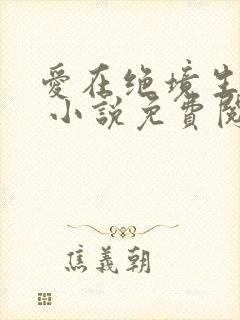 愛在绝境生
小說免費閱
焦義朝